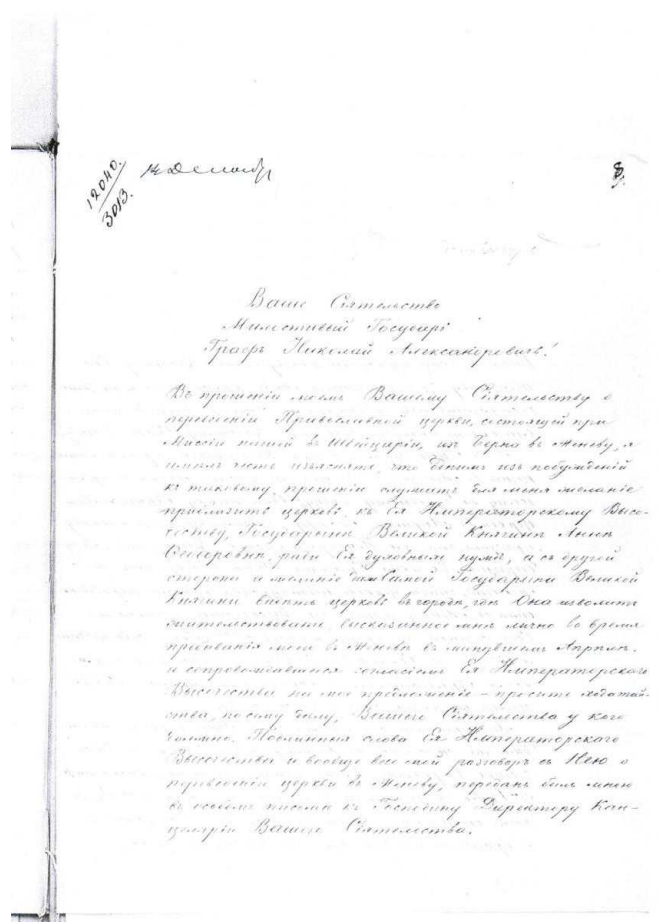 12040.
3013.
14 Декабр
8.
Ваше Сіятельство
Милостивый Государь
Графъ Николай Александровичъ!
Въ прошеніи моемъ Вашему Сіятельству о
перенесеніи Православной церкви, состоящей при
Миссіи нашей въ Швейцаріи, изъ Берна въ Женеву, я
имѣлъ честь изъяснять, что однимъ изъ побужденій
къ таковому прошенію служитъ для меня желаніе
приблизить церковь къ Ея Императорскому Высо-
честву, Государынѣ Великой Княгинѣ Аннѣ
Ѳеодоровнѣ, ради Ея духовныхъ нуждъ, а съ другой
стороны и желаніе Самой Государыни Великой
Княгини видѣть церковь въ городѣ, гдѣ Она изволитъ
жительствовать, высказанное мнѣ лично во время
пребыванія моего въ Женевѣ въ минувшемъ Апрѣлѣ,
и сопровождавшееся согласіемъ Ея Императорскаго
Высочества на мое предложеніе – просить ходатай-
ства, по сему дѣлу, Вашего Сіятельства у кого
должно. Подлинныя слова Ея Императорскаго
Высочества и вообще весь мой разговоръ съ Нею о
перенесеніи церкви въ Женеву, переданъ былъ мною
въ особомъ письмѣ къ Господину Директору Кан-
целяріи Вашего Сіятельства.